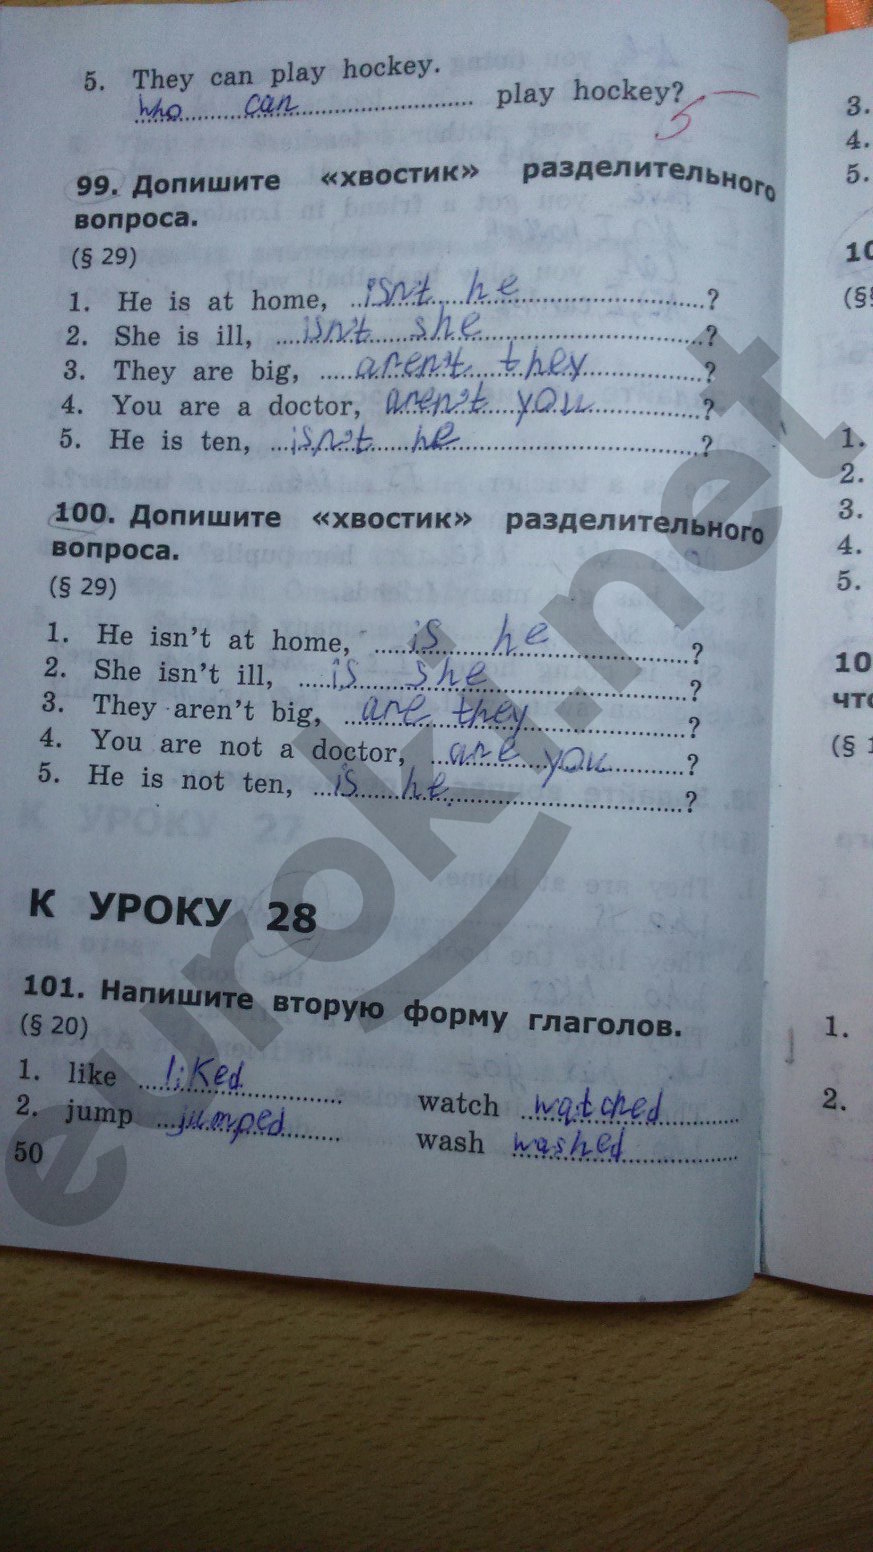 5. They can play hockey.
who can play hockey?
5-
99. Допишите «хвостик» разделительного
вопроса.
(§ 29)
1. He is at home, isn't he ?
2. She is ill, isn't she ?
3. They are big, aren't they ?
4. You are a doctor, aren't you ?
5. He is ten, isn't he ?
100. Допишите «хвостик» разделительного
вопроса.
(§ 29)
1. He isn't at home, is he ?
2. She isn't ill, is she ?
3. They aren't big, are they ?
4. You are not a doctor, are you ?
5. He is not ten, is he ?
К УРОКУ 28
101. Напишите вторую форму глаголов.
(§ 20)
1. like liked watch watched
2. jump jumped wash washed
50
3.
4.
5.
10
(§
1.
2.
3.
4.
5.
10
что
(§ 1
1.
2.
euroki.net